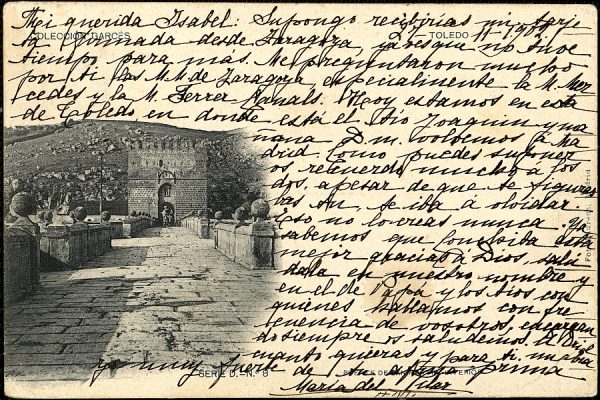 Mi querida Isabel: Supongo recibirias mi tarje
COLECCIÓN GARCÉS
TOLEDO
ta firmada desde Zaragoza, ya ves que no tuve
tiempo para más. Me preguntaron mucho
por ti las M.M. de Zaragoza especialmente la M. Mer
cedes y la M. Ferrer Canals. Hoy estamos en esta
de Toledo en donde está el tio Joaquin y ma
ñana D. m. volvemos a Ma
drid. Como puedes suponer
os recuerdo mucho a los
dos, apesar de que te figura
bas tu, se iba a olvidar.
Eso no lo creas nunca. Ya
sabemos que Conchita esta
mejor gracias a Dios, salu
dala en nuestro nombre y
en el de Papá y los tios con
quienes hablamos con fre
cuencia de vosotros, encargan
do siempre os saludemos. A Uriel
cuanto quieras y para ti un abra
yo muy fuerte de tu affma prima
SERIE D.-N. 8
María del Pilar